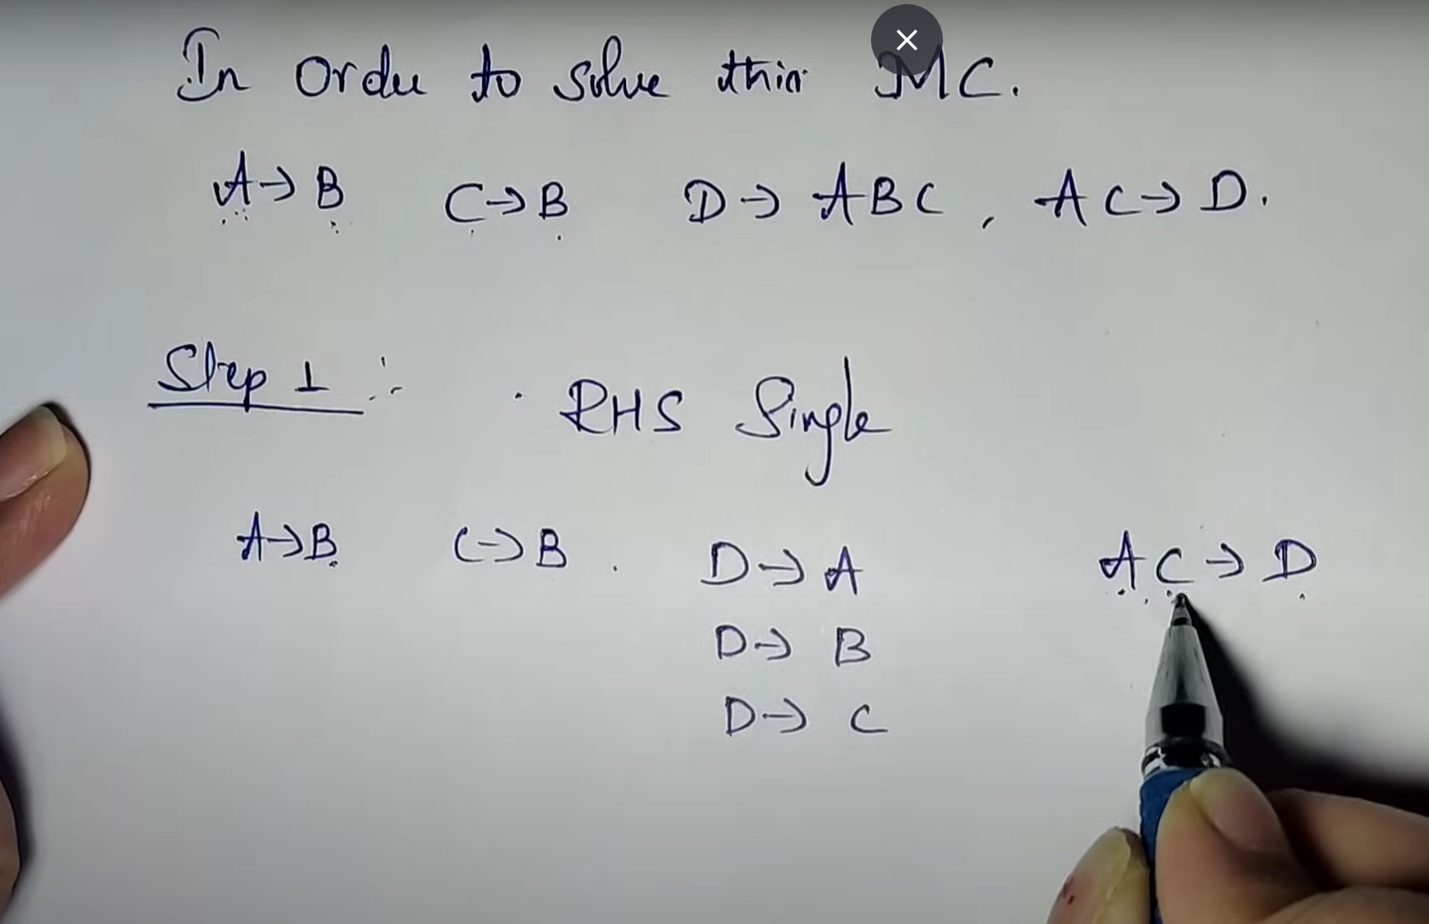 In Order to solve this MC.
A→B C→B D→ ABC, AC→D.
Step 1 :- RHS Single
A→B C→B D→A AC→D
D→ B
D→ C